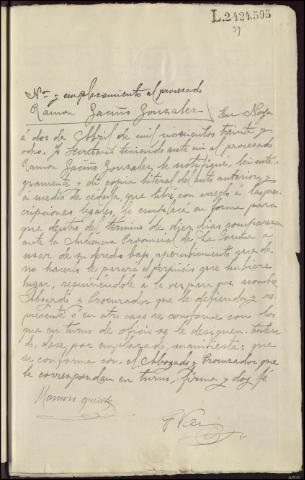 L.2424.595
Non y emplazamiento al procesado
Ramon Gaciño Gonzalez / En Noya
á dos de Abril de mil novecientos treinta y
ocho. Yo Secretario teniendo ante mi al procesado
Ramon Gaciño Gonzalez, le notifiqué, lei inte
gramente y di copia literal del auto anterior, y
á medio de cedula, que libré con areglo á las pres
cripciones legales, le emplacé en forma para
que dentro del termino de diez dias comparezca
ante la Audiencia Provincial de La Coruña a
usar de su derecho bajo apercibimiento que de
no hacerlo le parará el perjuicio que hubiere
lugar, requiriéndole á la vez para que nombre
Abogado y Procurador que le defienda y re
presente ó en otro caso se conforme con los
que en turno de oficio se le designen. Entera
do, dese, por emplazado, manifiesta: que
se conforma con el Abogado y Procurador que
le correspondan en turno, firma y doy fé
Ramon